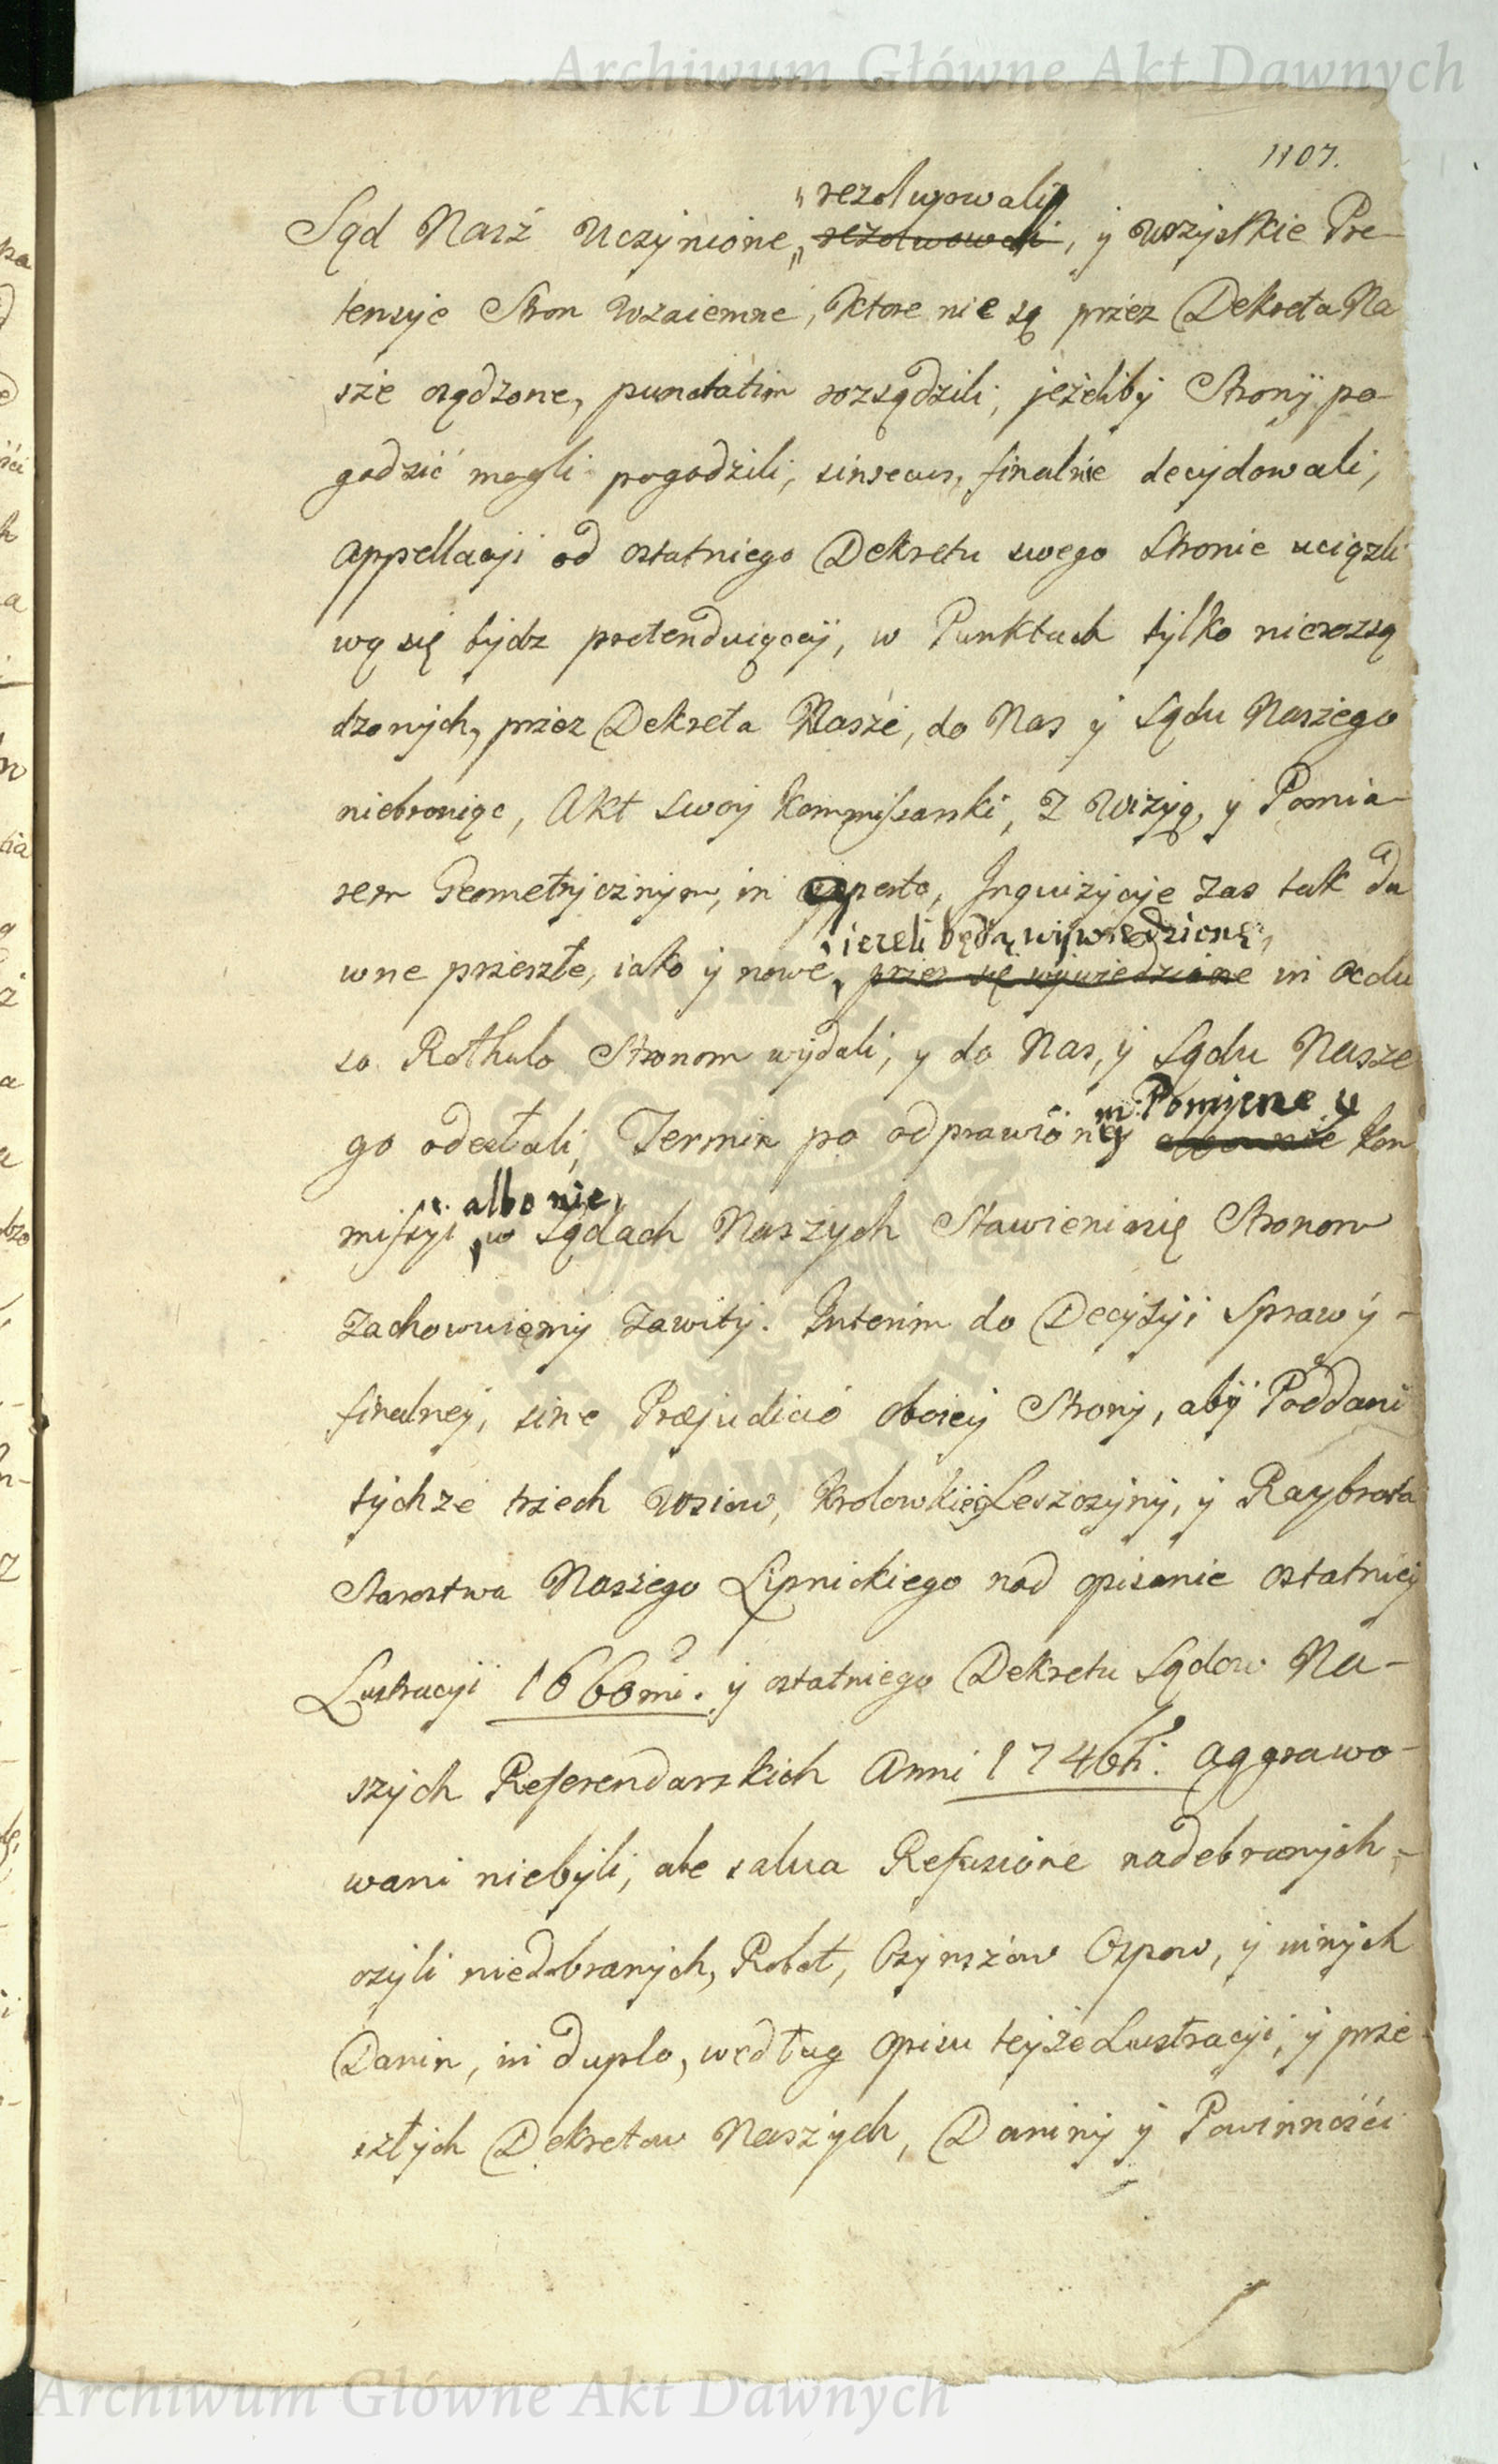 Archiwum Główne Akt Dawnych
1107.
rezolwowali
Sąd Nasz Uczynione, rezolwowali, y wszystkie Pre-
tensye Stron wzaiemne, ktore nie są przez Dekreta Na
sze osądzone, punctatim rozsądzili, jeżeliby Strony po-
godzić mogli pogodzili, sinsecus, finalnie decydowali,
appellacyi od ostatniego Dekretu swego Stronie uciązli
wą się bydz pretenduiącey, w Punktach tylko nierozsą
dzonych, przez Dekreta Nasze, do Nas y Sądu Naszego
niebroniąc, Akt swoy Kommissarski, z Wizyą, y Pomia-
rem Geometrycznym, in aperto, Inquizycye zas tak da
iezeli będą wywiedzione,
wne przeszłe, iako y nowe, przez się wywiedzione in clau
so Rothulo Stronom wydali, y do Nas, y Sądu Nasze
go odesłali, Termin po odprawioney
albo nie Kom
albo nie,
missyi w Sądach Naszych Stawienia się Stronom
zachowuiemy zawity. Interim do Decyzyi Sprawy-
finalney, sine Præjudicio oboiey Strony, aby Poddani
tychże trzech wsiow, Krolowkiey Leszczyny, y Raybrota
Starostwa Naszego Lipnickiego nad opisanie ostatniey
Lustracyi 1660mi. y ostatniego Dekretu Sądow Na-
szych Referendarskich Anni 1746ti. aggrawo-
wani niebyli, ale salva Refusione nadebranych-
czyli niedobranych, Robot, Czynszow Ospow, y innych
Danin, in duplo, według opisu teyże Lustracyi, y prze
szłych Dekretow Naszych, Daniny y Powinności
Archiwum Główne Akt Dawnych